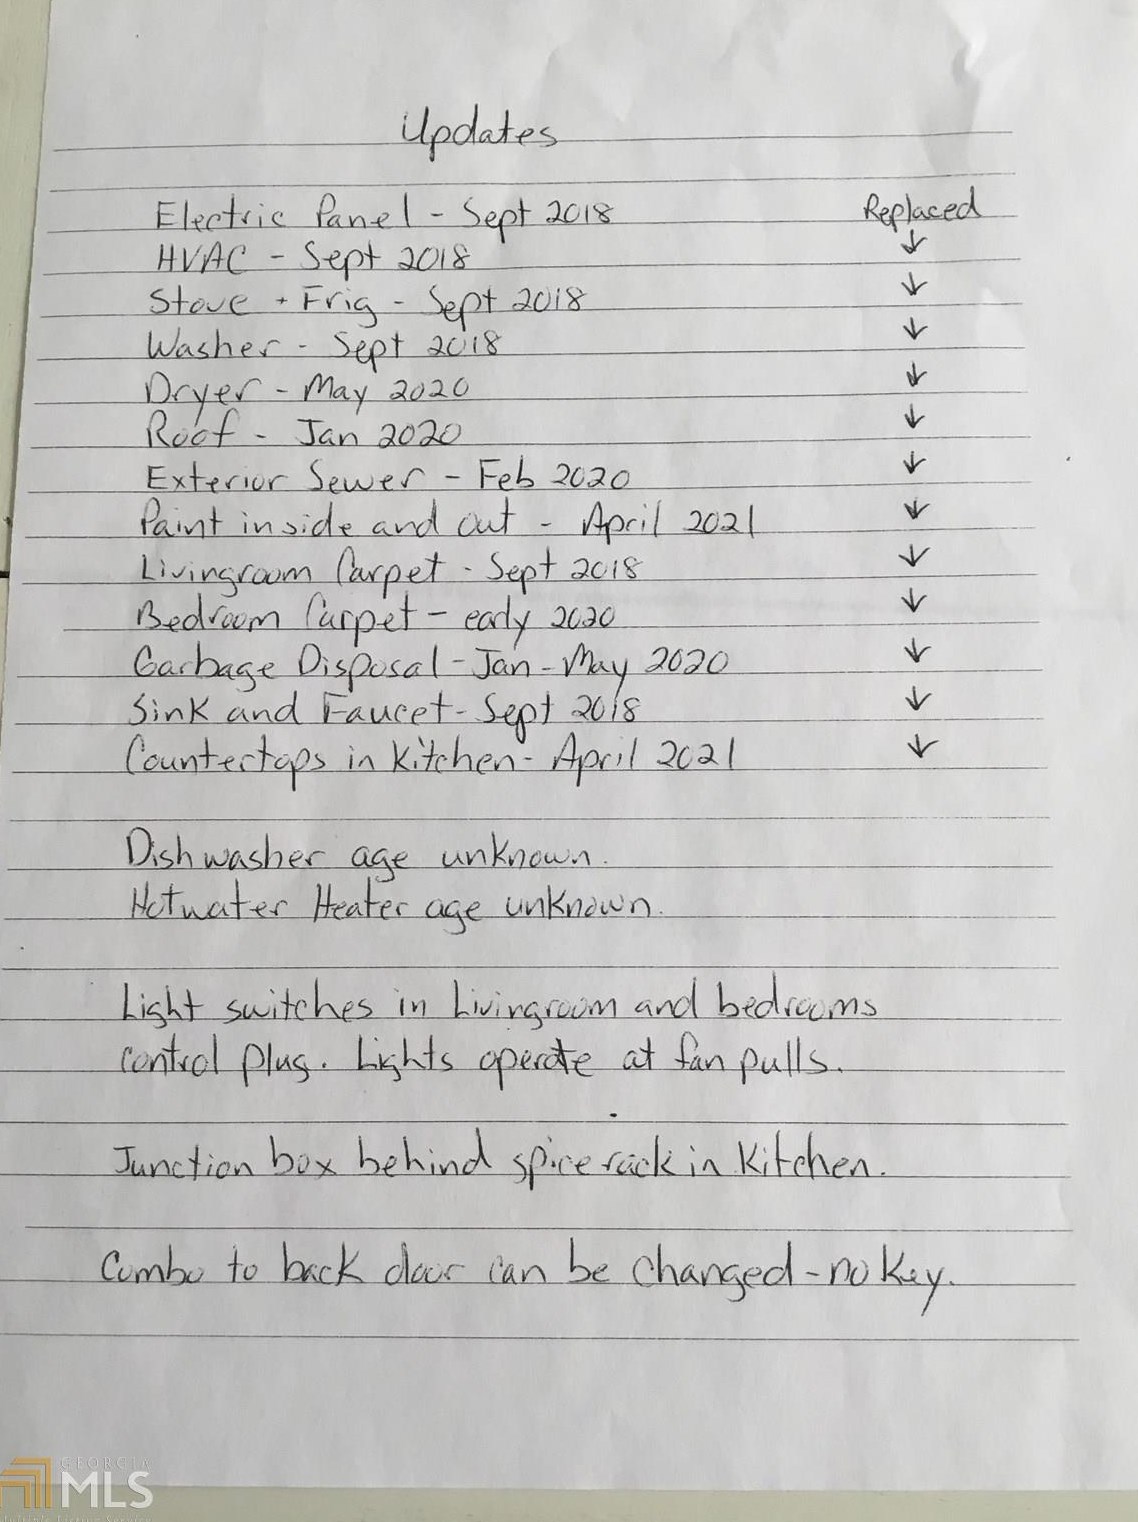 Updates
Electric Panel - Sept 2018 Replaced
HVAC - Sept 2018 ↓
Stove + Frig - Sept 2018 ↓
Washer - Sept 2018 ↓
Dryer - May 2020 ↓
Roof - Jan 2020 ↓
Exterior Sewer - Feb 2020 ↓
Paint inside and out - April 2021 ↓
Livingroom Carpet - Sept 2018 ↓
Bedroom Carpet - early 2020 ↓
Garbage Disposal - Jan - May 2020 ↓
Sink and Faucet - Sept 2018 ↓
Countertops in Kitchen - April 2021 ↓
Dishwasher age unknown.
Hotwater Heater age unknown.
Light switches in Livingroom and bedrooms
control plug. Lights operate at fan pulls.
Junction box behind spice rack in Kitchen.
Combo to back door can be changed - no Key.
GEORGIA
MLS